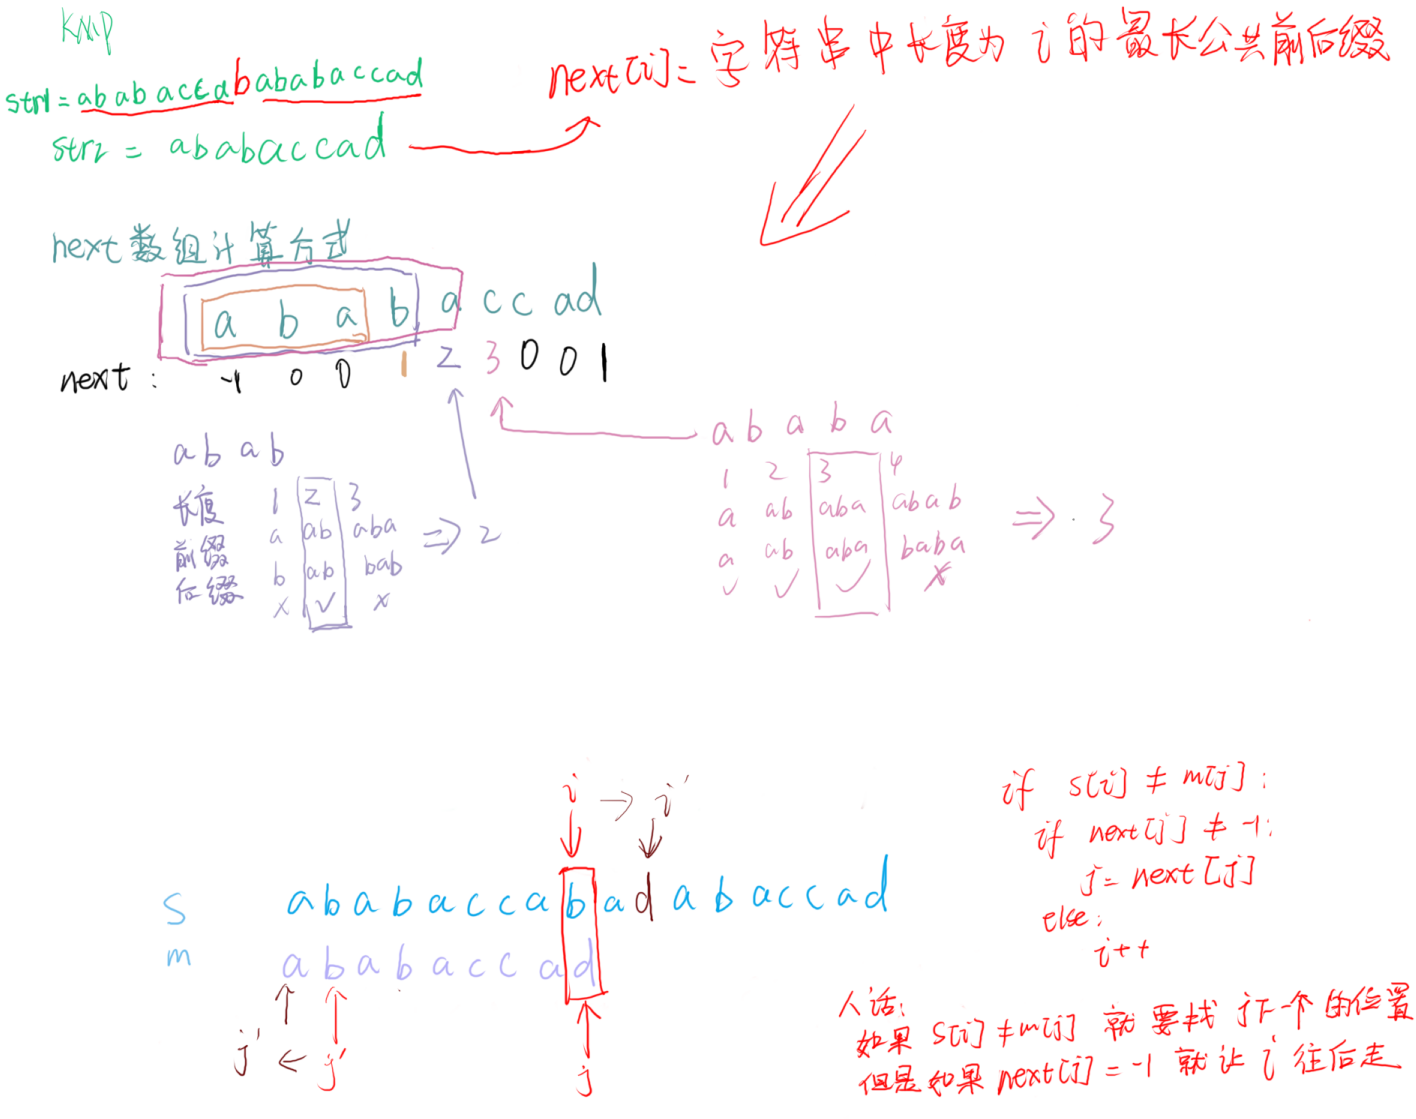 KMP
str1 = ababaccababababaccad
str2 = ababaccad
next[i] = 字符串中长度为 i 的最长公共前后缀
next 数组计算方式
a b a b a c c a d
next : -1 0 0 1 2 3 0 0 1
a b a b
长度 1 2 3
前缀 a ab aba
后缀 b ab bab
x ✓ x
⇒ 2
a b a b a
1 2 3 4
a ab aba abab
a ab aba baba
✓ ✓ ✓ x
⇒ 3
i → i'
S a b a b a c c a b a d a b a c c a d
m a b a b a c c a d
j' ← j'
j
if s[i] ≠ m[j] :
if next[j] ≠ -1:
j = next[j]
else:
i++
人话:
如果 s[i] ≠ m[j] 就要找 j下一个的位置
但是如果 next[j] = -1 就让 i 往后走